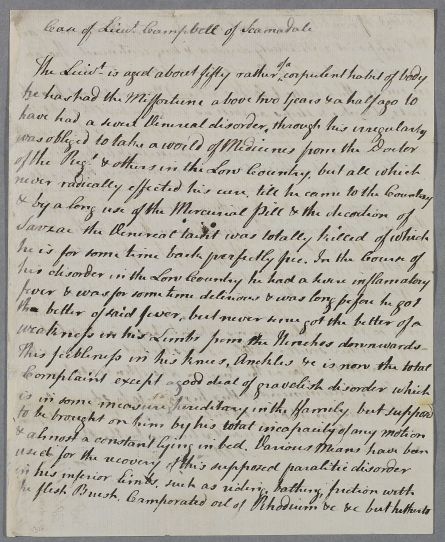 Case of Lieut. Campbell of Scamadale
The Lieut. is aged about fifty rather of a corpulent habit of body
he has had the Misfortune above two Years & a half ago to
have had a severe Venereal disorder, through his irregularity
was obliged to take a world of Medicines from the Doctor
of the Regt & others in the Low Country, but all which
never radically effected his cure till he came to the Country
& by a long use of the Mercurial Pill & the decoction of
Sarzae the Venereal taint was totally killed of which
he is for some time back perfectly free. In the Course of
his disorder in the Low Country he had a severe inflamatory
fever & was for some time delirious & was long before he got
the better of said fever, but never since got the better of a
weakness in his Limbs from the Hinches downwards
This feebleness in his Knees, Anckles &c is now the total
Complaint except a good deal of gravelish disorder which
is in some measure hereditary in the Family, but suppose
to be brought on him by his total incapacity of any motion
& almost a constant lying in bed. Various Means have been
used for the recovery of this supposed paralitic disorder
in his inferior limbs, such as riding, bathing, friction with
the flesh Brush, Camporated oil of Rhodium &c &c but hitherto